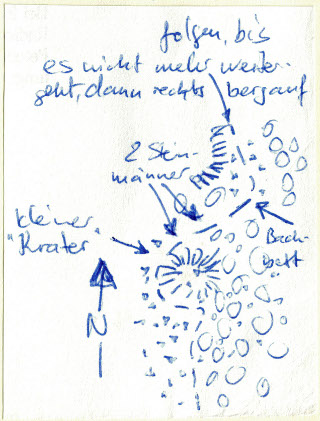 folgen, bis
es nicht mehr weiter-
geht, dann rechts bergauf
2 Stein-
männer
kleiner
"Krater"
Bach-
bett
N